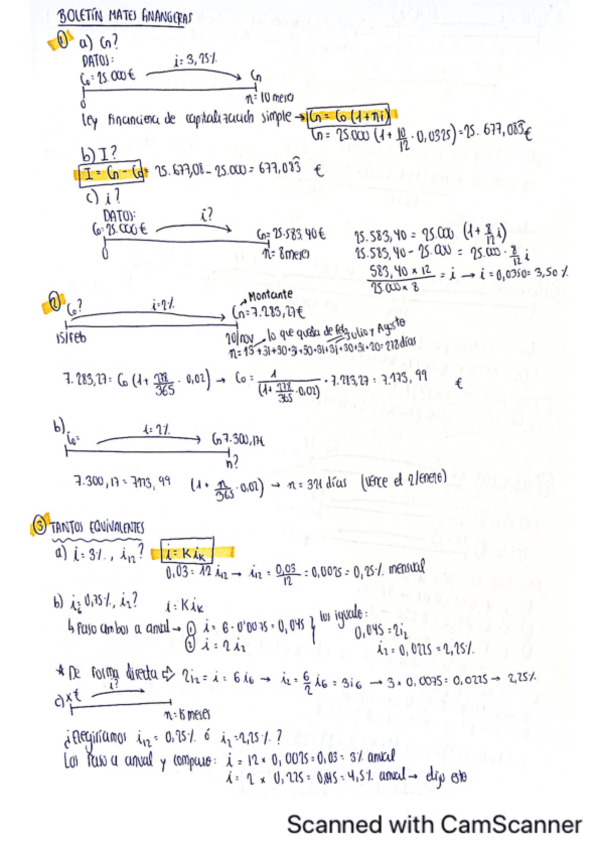 BOLETÍN MATES FINANCIERAS
① a) Cn?
DATOS:
C₀=25.000€ i=3,25% Cn
0 n=10 meses
Ley financiera de capitalización simple → Cn = C₀ (1+ni)
Cn = 25.000 (1+ 10/12 · 0,0325) = 25.677,083€
b) I?
I = Cn - C₀ = 25.677,08 - 25.000 = 677,083 €
c) i?
DATOS:
C₀=25.000€ i? Cn=25.583,40€
0 n=8 meses
25.583,40 = 25.000 (1+ 8/12 i)
25.583,40 - 25.000 = 25.000 · 8/12 i
583,40 × 12 / 25.000 × 8 = i → i=0,0350= 3,50%
② C₀? i=2% Montante
Cn=7.283,27€
15/feb 20/nov lo que queda de feb Julio y Agosto
n = 13+31+30+31+30+31+31+30+31+20=278 días
7.283,27= C₀ (1+ 278/365 · 0,02) → C₀ = 1/(1+ 278/365 ·0,02) · 7.283,27 = 7.173,99 €
b) C₀= i=2% Cn 7.300,17€
n?
7.300,17 = 7173,99 (1+ n/365 ·0,02) → n = 321 días (vence el 2/enero)
③ TANTOS EQUIVALENTES
a) i=3%, i₁₂? i = K iₖ
0,03 = 12 i₁₂ → i₁₂ = 0,03/12 = 0,0025 = 0,25% mensual
b) i₆ 0,75%, i₂? i = K iₖ
↳ Paso ambos a anual → ① i = 6 · 0'0075 = 0,045 } los igualo:
② i = 2 i₂ 0,045 = 2i₂
i₂ = 0,0225 = 2,25%
* De forma directa ⇨ 2i₂ = i = 6 i₆ → i₂ = 6/2 i₆ = 3i₆ → 3 × 0,0075 = 0,0225 → 2,25%
c) x€ i?
n=15 meses
¿Elegiríamos i₁₂ = 0,25% ó i₂ = 2,25%?
Los paso a anual y comparo: i = 12 × 0,0025 = 0,03 = 3% anual
i = 2 × 0,225 = 0,045 = 4,5% anual → elijo este
Scanned with CamScanner